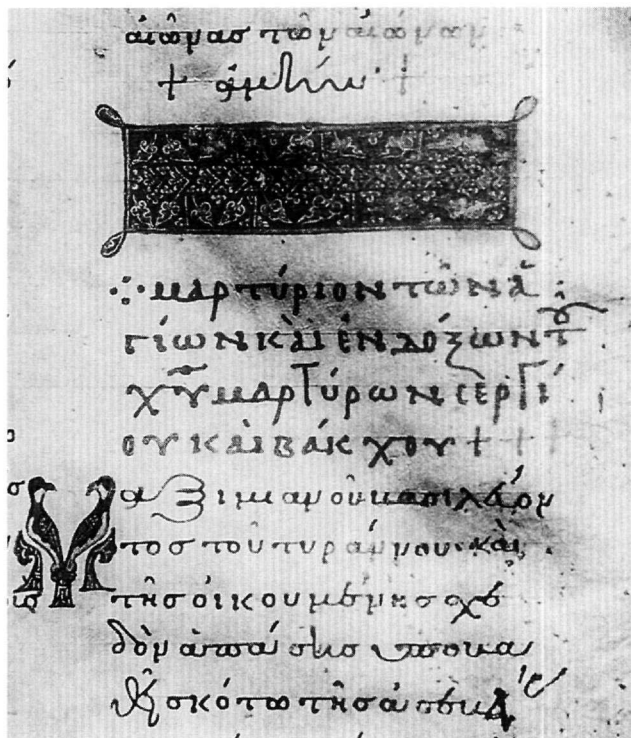 αἰῶνας τῶν αἰώνων
+ ἀμήν· +
∴ ΜΑΡΤΎΡΙΟΝ ΤῶΝ Ἁ
ΓΊΩΝ ΚΑῚ ἘΝΔΌΞΩΝ Τ
ΧΥ ΜΑΡΤΎΡΩΝ ΣΕΡΓΊ
ΟΥ ΚΑῚ ΒΆΚΧΟΥ +
Μαξιμιανοῦ καπιλάρον
τος τοῦ τυράννου· καὶ
τῆς οἰκουμένης σχε
δὸν ἁπάσης ὑπὸ βα
θεῖ σκότω τῆς ἀσεβεί